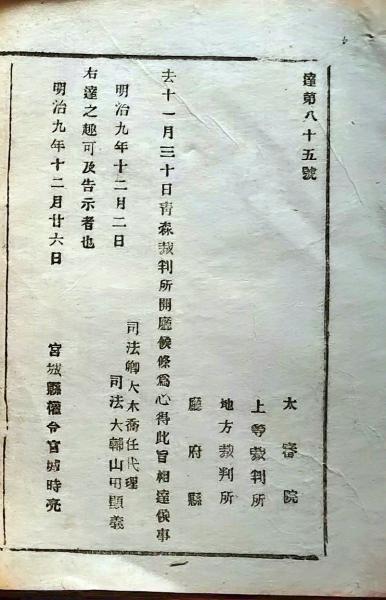 達第八十五號
大審院
上等裁判所
地方裁判所
廳府縣
去十一月三十日青森裁判所開廳候條爲心得此旨相達候事
司法卿大木喬任代理
明治九年十二月二日
司法大輔山田顯義
右達之趣可及告示者也
明治九年十二月廿六日
宮城縣權令宮城時亮